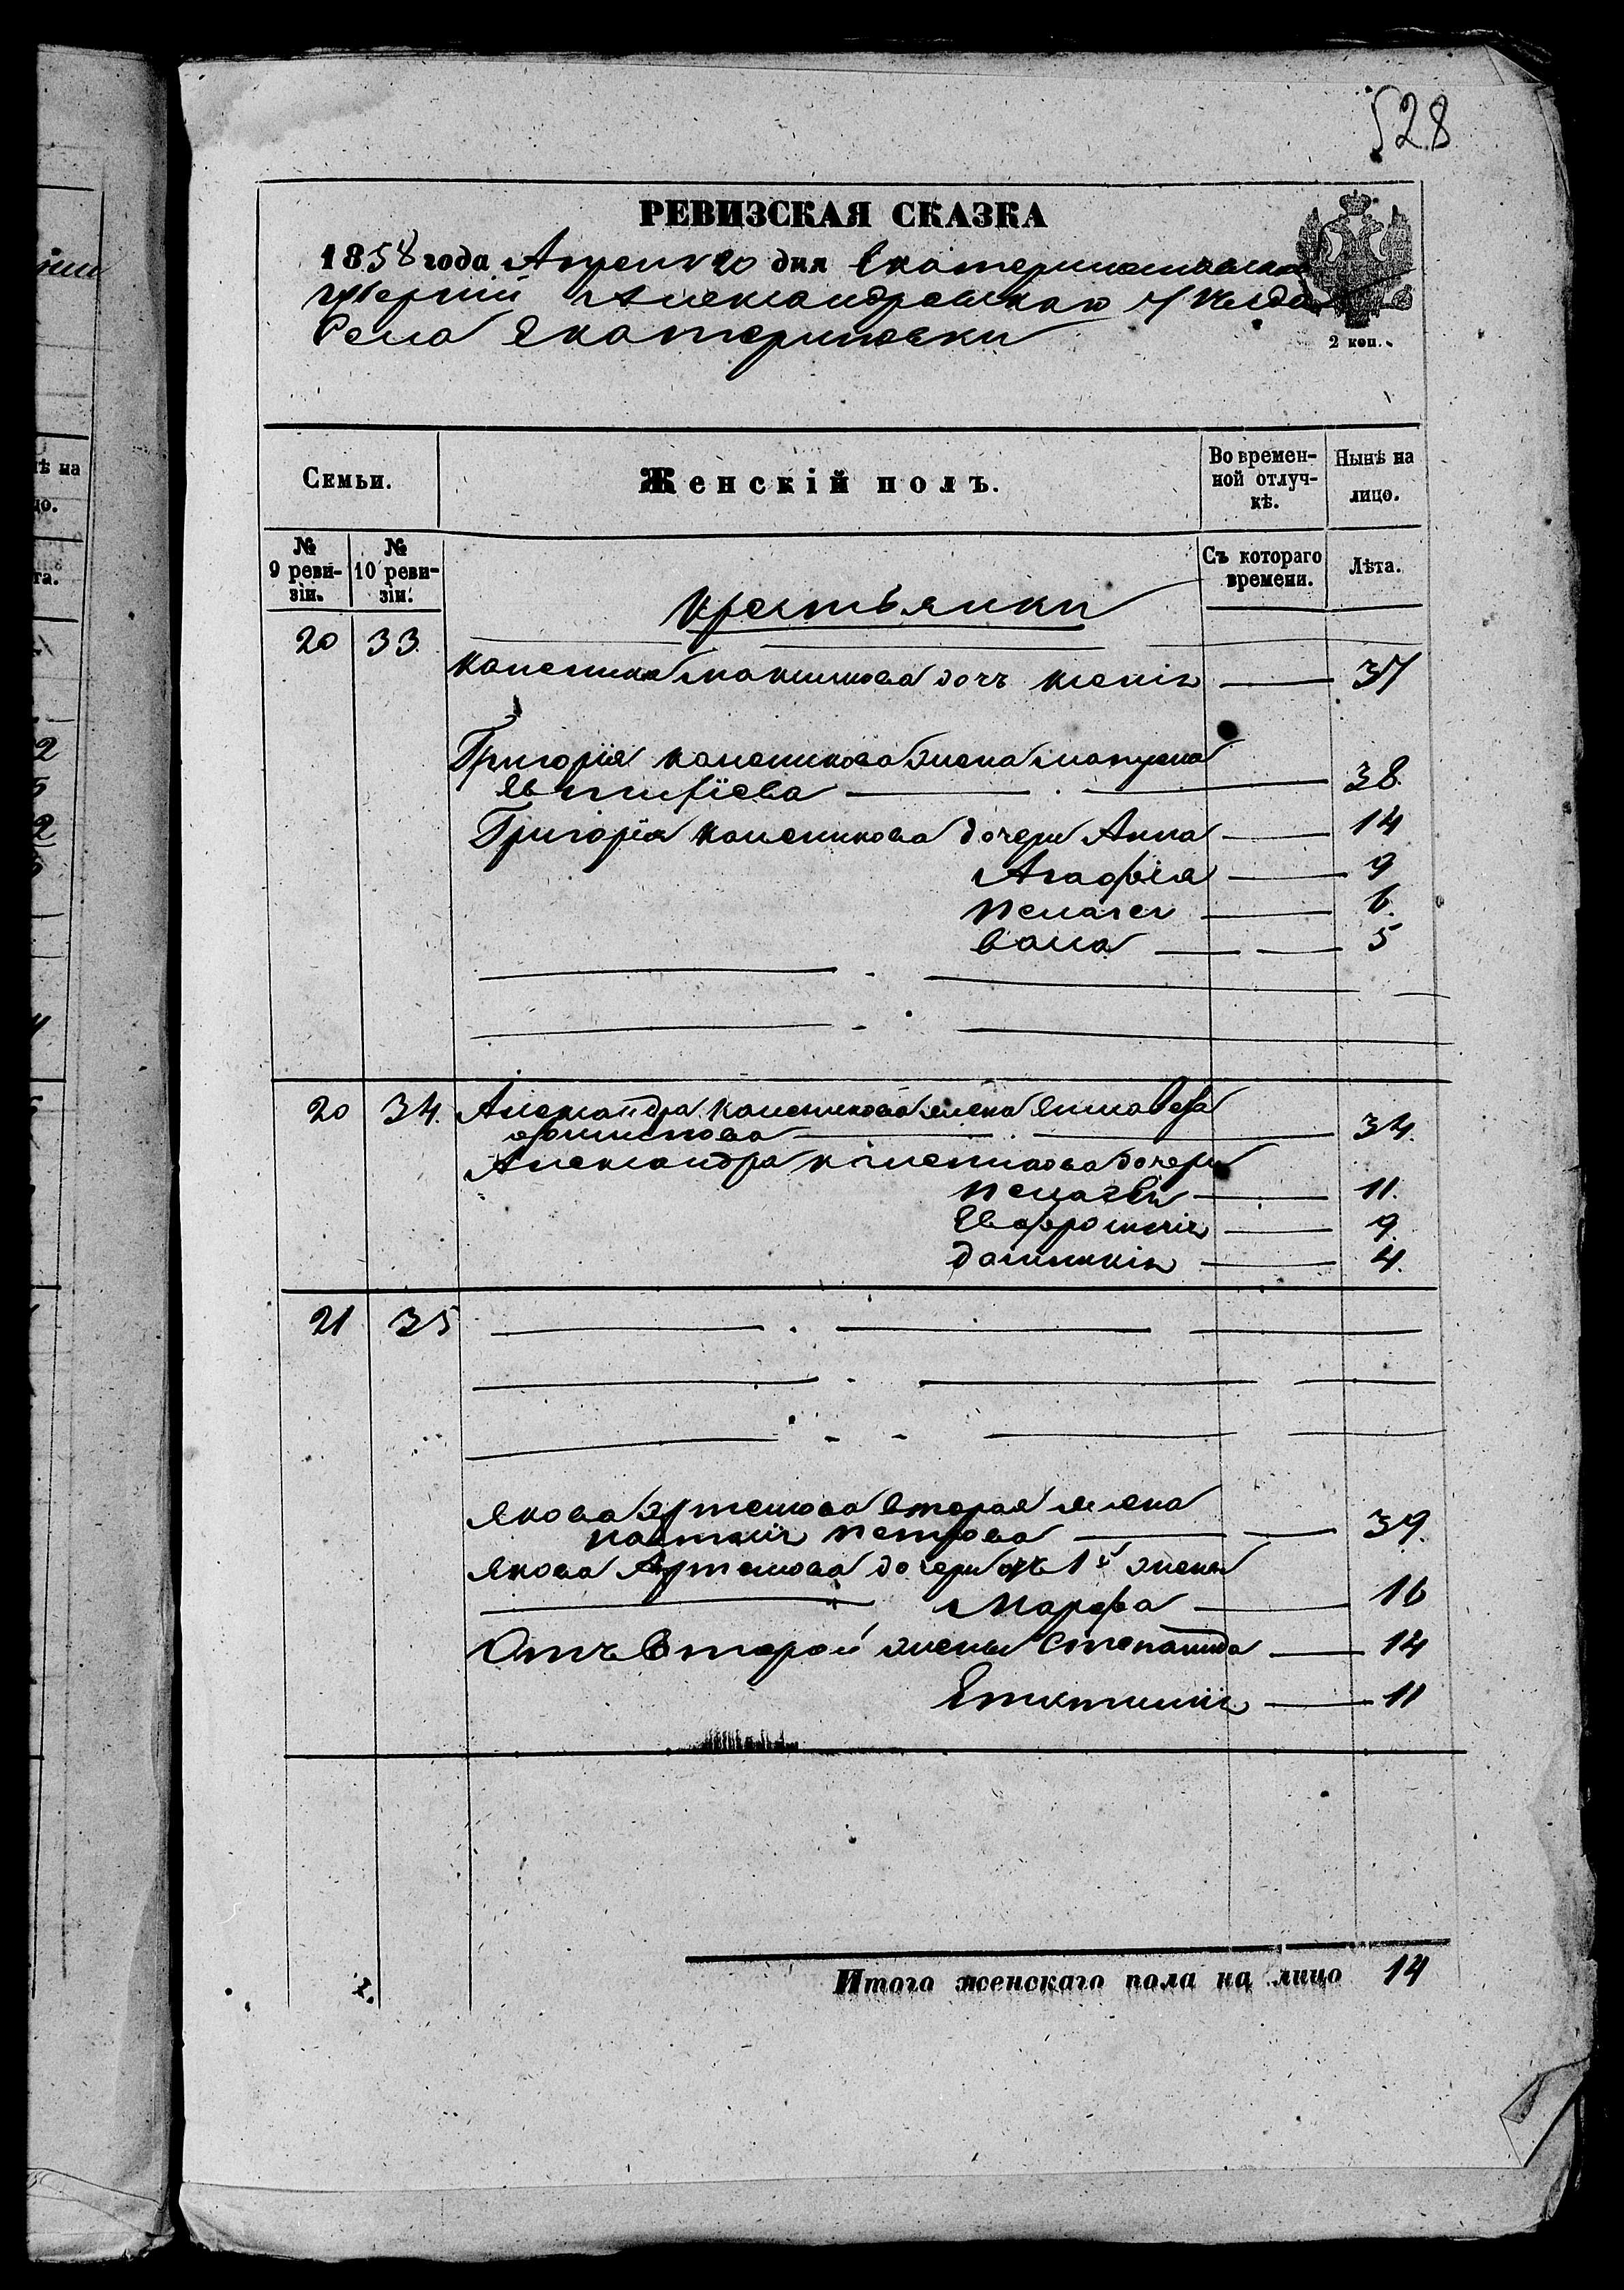 528
РЕВИЗСКАЯ СКАЗКА
1858 года Апреля 20 дня Екатеринославской
губерніи Александровскаго уезда
Села Екатериновки
2 коп.
Семьи.
Женскій полъ.
Во времен-
ной отлуч-
кѣ.
Нынѣ на
лицо.
№
9 реви-
зіи.
№
10 реви-
зіи.
Съ котораго
времени.
Лѣта.
Крестьянки
20 33. Максимова дочь Ксенія 37
Григорія жена
38
Григорія дочери Анна 14
Агафія 9
Пелагея 6.
5
20 34. Александра жена Елисавета
34.
Александра дочери
Пелагея 11.
Евфросинія 9.
Домникія 4.
21 35
Якова Артемова вторая жена
Петрова 39.
Якова Артемова дочери отъ 1й жены
Марфа 16
Отъ второй жены Степанида 14
11
Итого женскаго пола на лицо 14